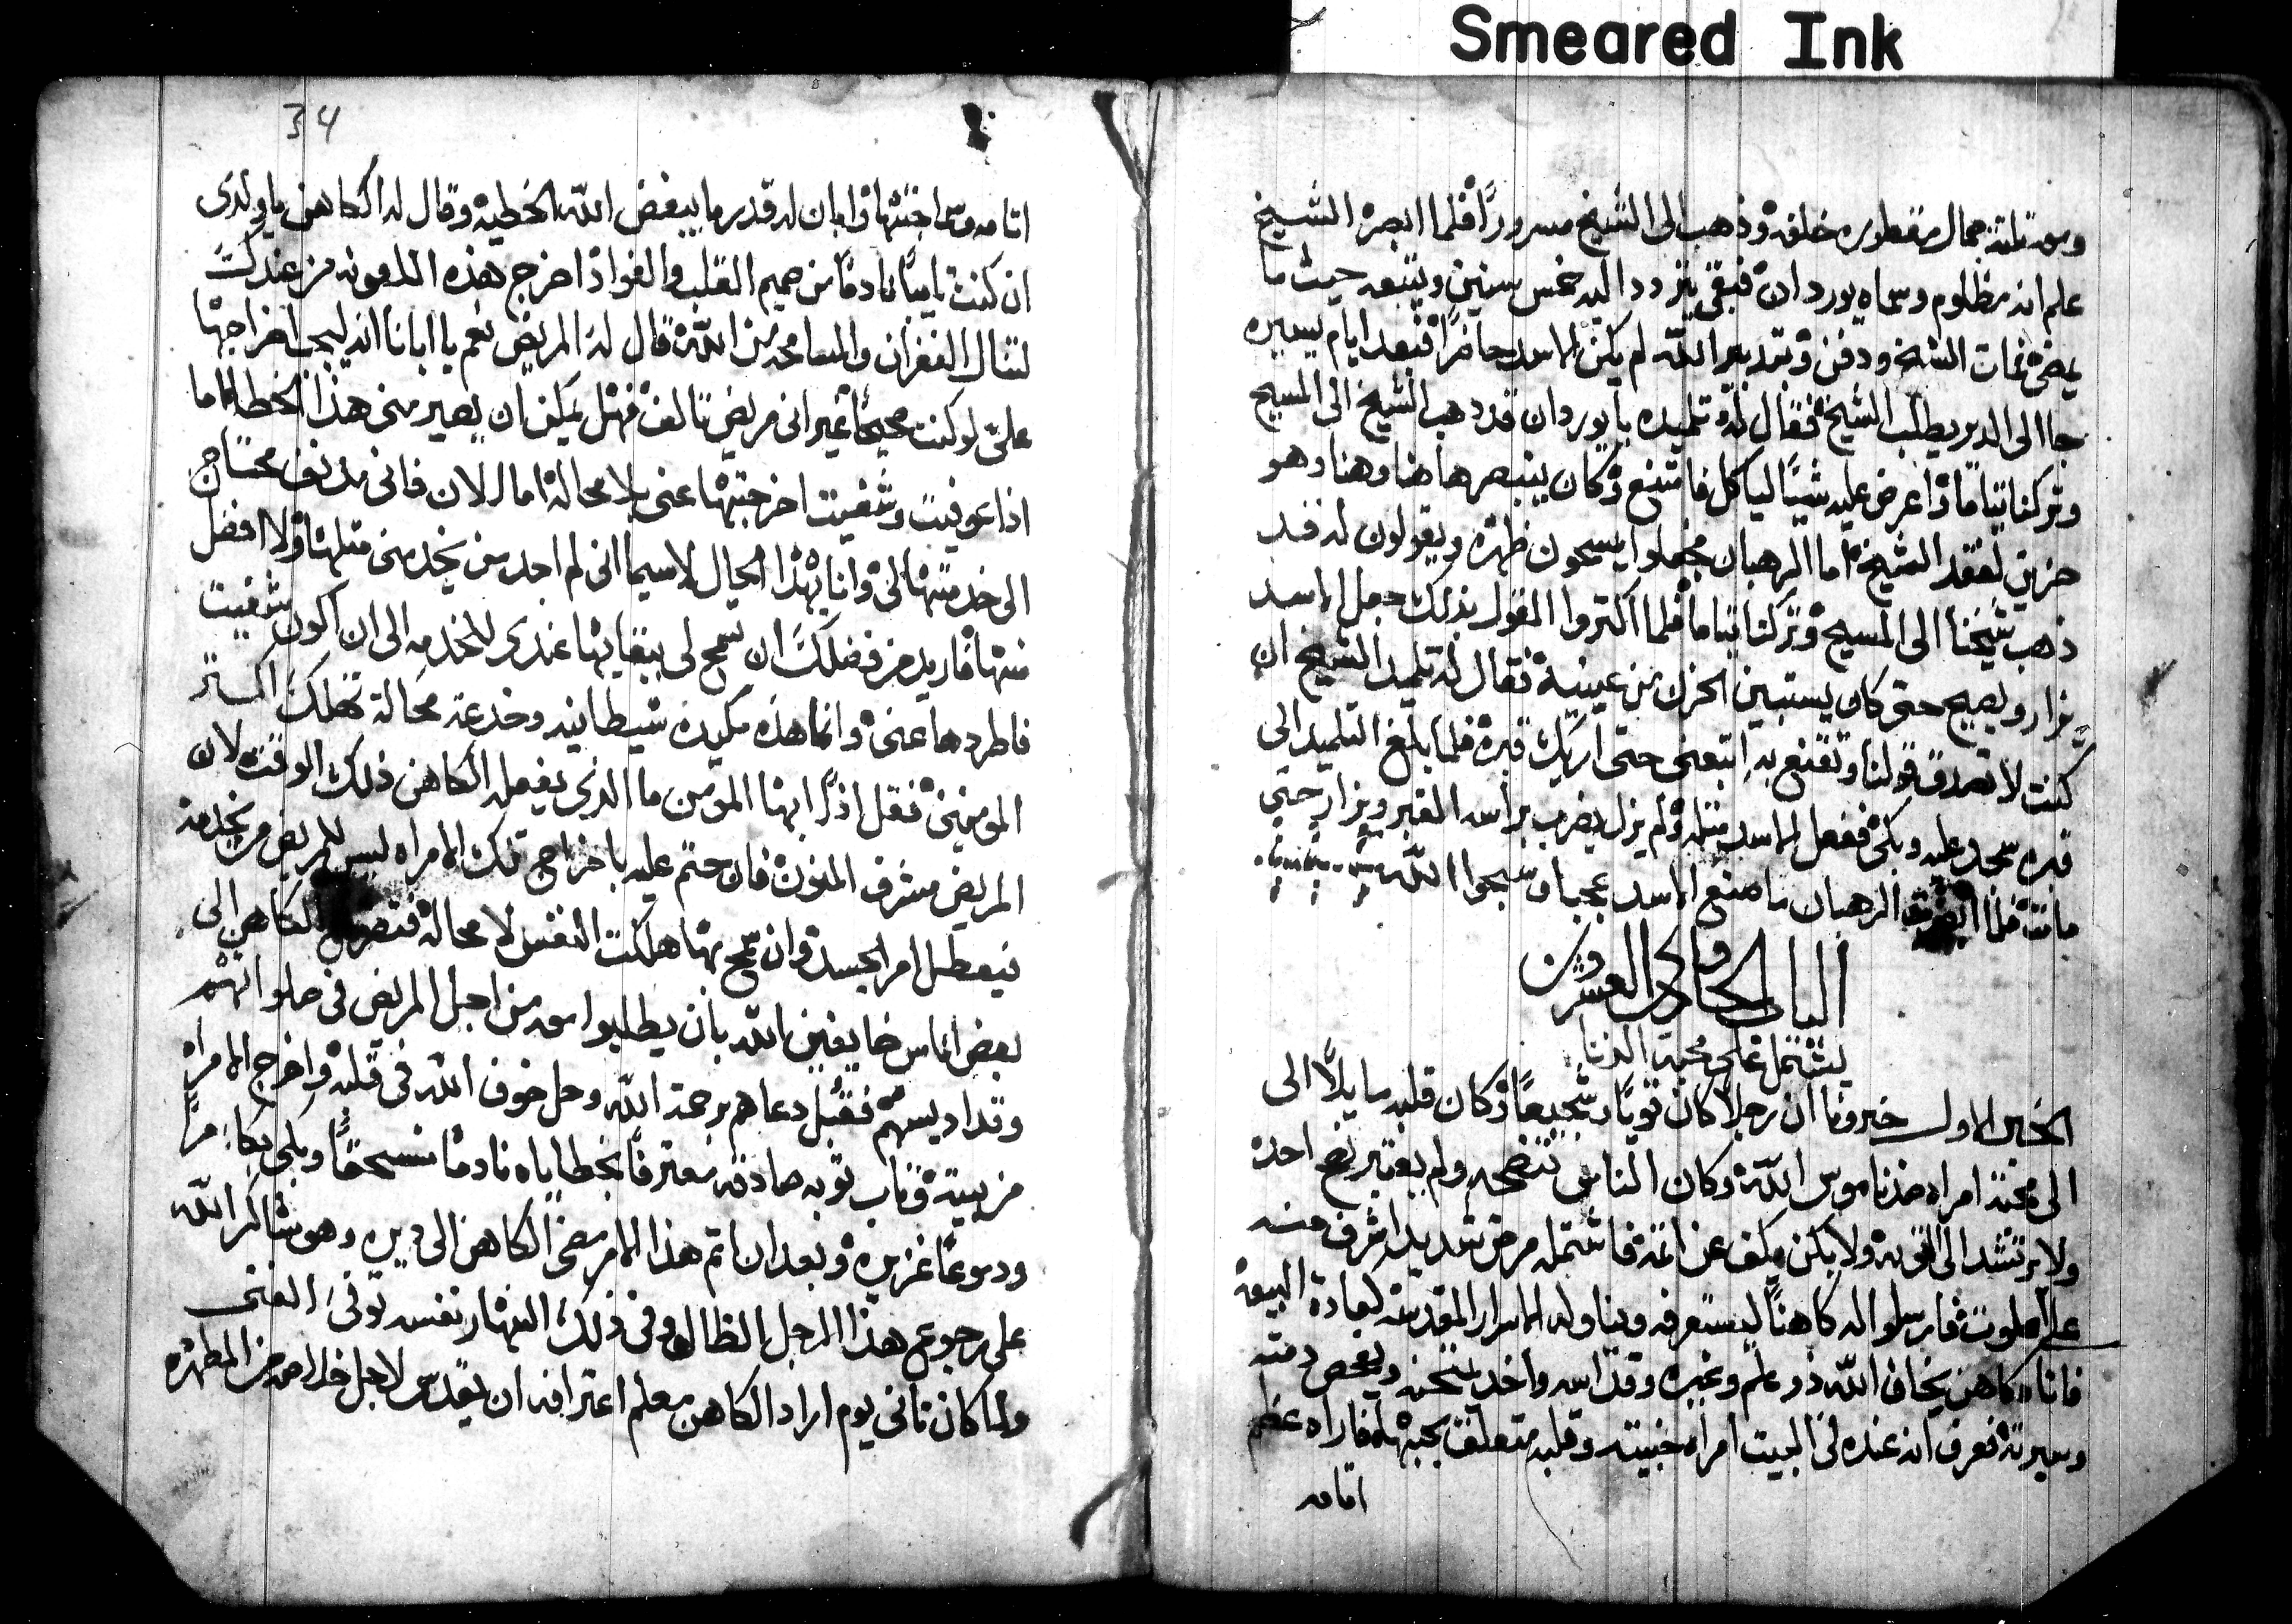 Smeared Ink
ومعه ثلثة جمال مقطوره خلفه وذهب الى الشيخ مسرورًا فلما ابصره الشيخ
علم انه مظلوم وسماه يوردان فبقي يتردد اليه خمس سنين ويتبعه حيث ما
يمضي فمات الشيخ ودفن وبتدبير الله لم يكن الاسد حاضرًا فبعد ايام يسيره
جا الى الدير يطلب الشيخ فقال له تلميذه يا يوردان قد ذهب الشيخ الى المسيح
وتركنا يتاما واعرض عليه شيًا لياكل فامتنع وكان يتبصر هاهنا وهنا وهو
حزين لفقد الشيخ اما الرهبان فجعلوا يمسحون ظهره ويقولون له قد
ذهب شيخنا الى المسيح وتركنا يتاما فلما اكتروا القول بذلك جعل الاسد
يزار ويصيح حتى كان يستبين الحزن من عينيه فقال له تلميد الشيخ ان
كنت لا تصدق قولنا وتقتنع به اتبعني حتى اريك قبره فلما بلغ التلميد الى
قبره سجد عليه وبكى ففعل الاسد مثله ولم يزل يضرب براسه القبر ويزار حتى
مات فلما الرهبان ما صنع الاسد عجبوا وسبحوا الله
الباب الحادي والعشرون
يشتمل على محبة الزنا
الخبر الاول خبرونا ان رجلا كان قويًا شجيعًا وكان قلبه مايلًا الى
الى محبة امراه ضد ناموس الله وكان الناس تنصحه ولم يقتبر نصح احد
ولا يرتشد الى التوبة ولا يكن مكف عن اتمه فاشتمله مرض شديد اشرف منه
على الموت فارسلوا اله كاهنًا ليستعرفه ويناوله الاسرار المقدسه كعادة البيعه
فاتاه كاهن يخاف الله ذو علم وخبره وقداسه واخد يمتحنه ويفحص دمته
وسيرته فعرف انه عنده في البيت امراه خبيته وقلبه متعلق بحبها فاراه عظم
اتامه
34
اتامه وسماجتها وابان له قدر ما يبغض الله الخطيه وقال له الكاهن يا ولدي
ان كنت تايبًا نادمًا من صميم القلب والفواد اخرج هذه الملعونه من عندك
لتنال الغفران والمسامحه من الله قال له المريض نعم يا ابانا انه ليجب اخراجها
علي لو كنت صحيحًا غير اني مريض تالف فهل يمكن ان يصير مني هذا الخطا اما
اذا عوفيت وشفيت اخرجتها عني بلا محالة اما الان فاني مدنف محتاج
الى خدمتها لي وانا بهذا الحال لاسيما اني لم اجد من يخدمني مثلها ولا افضل
منها فاريد من فضلك ان تسمح لي ببقايها عندي للخدمه الى ان اكون شفيت
فاطردها عني وانما هذه مكيدة شيطانيه وخدعة محالة تهلك اكتر
المومنين فقل اذًا ايها المومن ما الدي يفعله الكاهن ذلك الوقت لان
المريض مشرف المنون فان حتم عليه باخراج تلك الامراه ليس للمريض من يخدمه
فيعطل امر الجسد وان سمح بها هلكت النفس لا محالة الكاهن الى
بعض اناس خايفين الله بان يطلبوا معه من اجل المريض في صلواتهم
وقداديسهم فقبل دعاهم برحمة الله وحل خوف الله في قلبه واخرج الامراه
من بيته وتاب توبه صادقه معترفًا بخطاياه نادمًا منسحقًا وبكى بكاء مرًا
ودموعًا غزيره وبعد ان اتم هذا الامر مضى الكاهن الى ديره وهو شاكر الله
على رجوع هذا الرجل الظال وفي ذلك النهار نفسه توفى الغنى
ولما كان تاني يوم اراد الكاهن معلم اعترافه ان يقدس لاجل خلاصه من المطهره